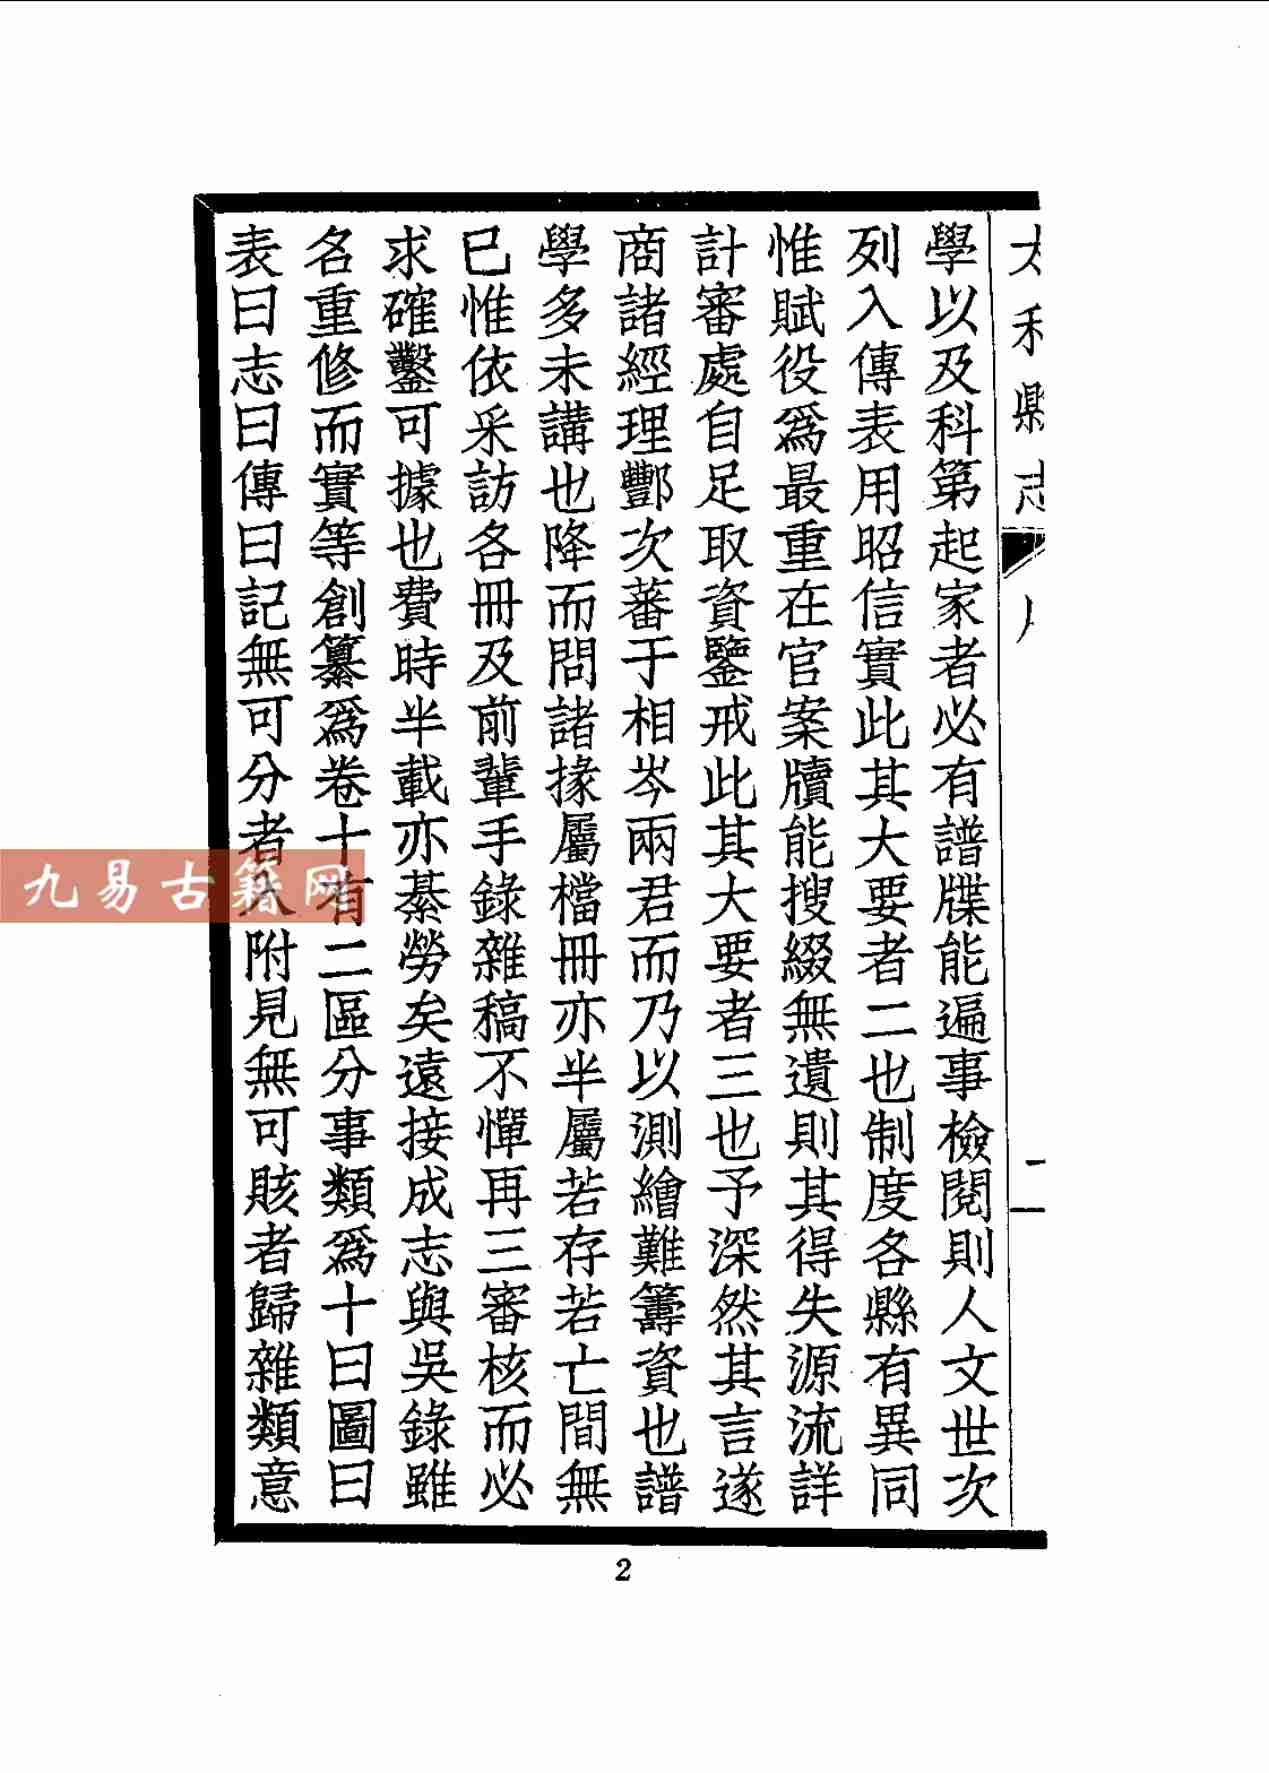 太和縣志
二
學以及科第起家者必有譜牒能遍事檢閱則人文世次
列入傳表用昭信實此其大要者二也制度各縣有異同
惟賦役爲最重在官案牘能搜綴無遺則其得失源流詳
計審處自足取資鑒戒此其大要者三也予深然其言遂
商諸經理酆次蕃于相岑兩君而乃以測繪難籌資也譜
學多未講也降而問諸掾屬檔冊亦半屬若存若亡間無
已惟依采訪各冊及前輩手錄雜稿不憚再三審核而必
求確鑿可據也費時半載亦綦勞矣遠接成志與吳錄雖
名重修而實等創纂爲卷十有二區分事類爲十曰圖曰
表曰志曰傳曰記無可分者入附見無可賅者歸雜類意
九易古籍网
2